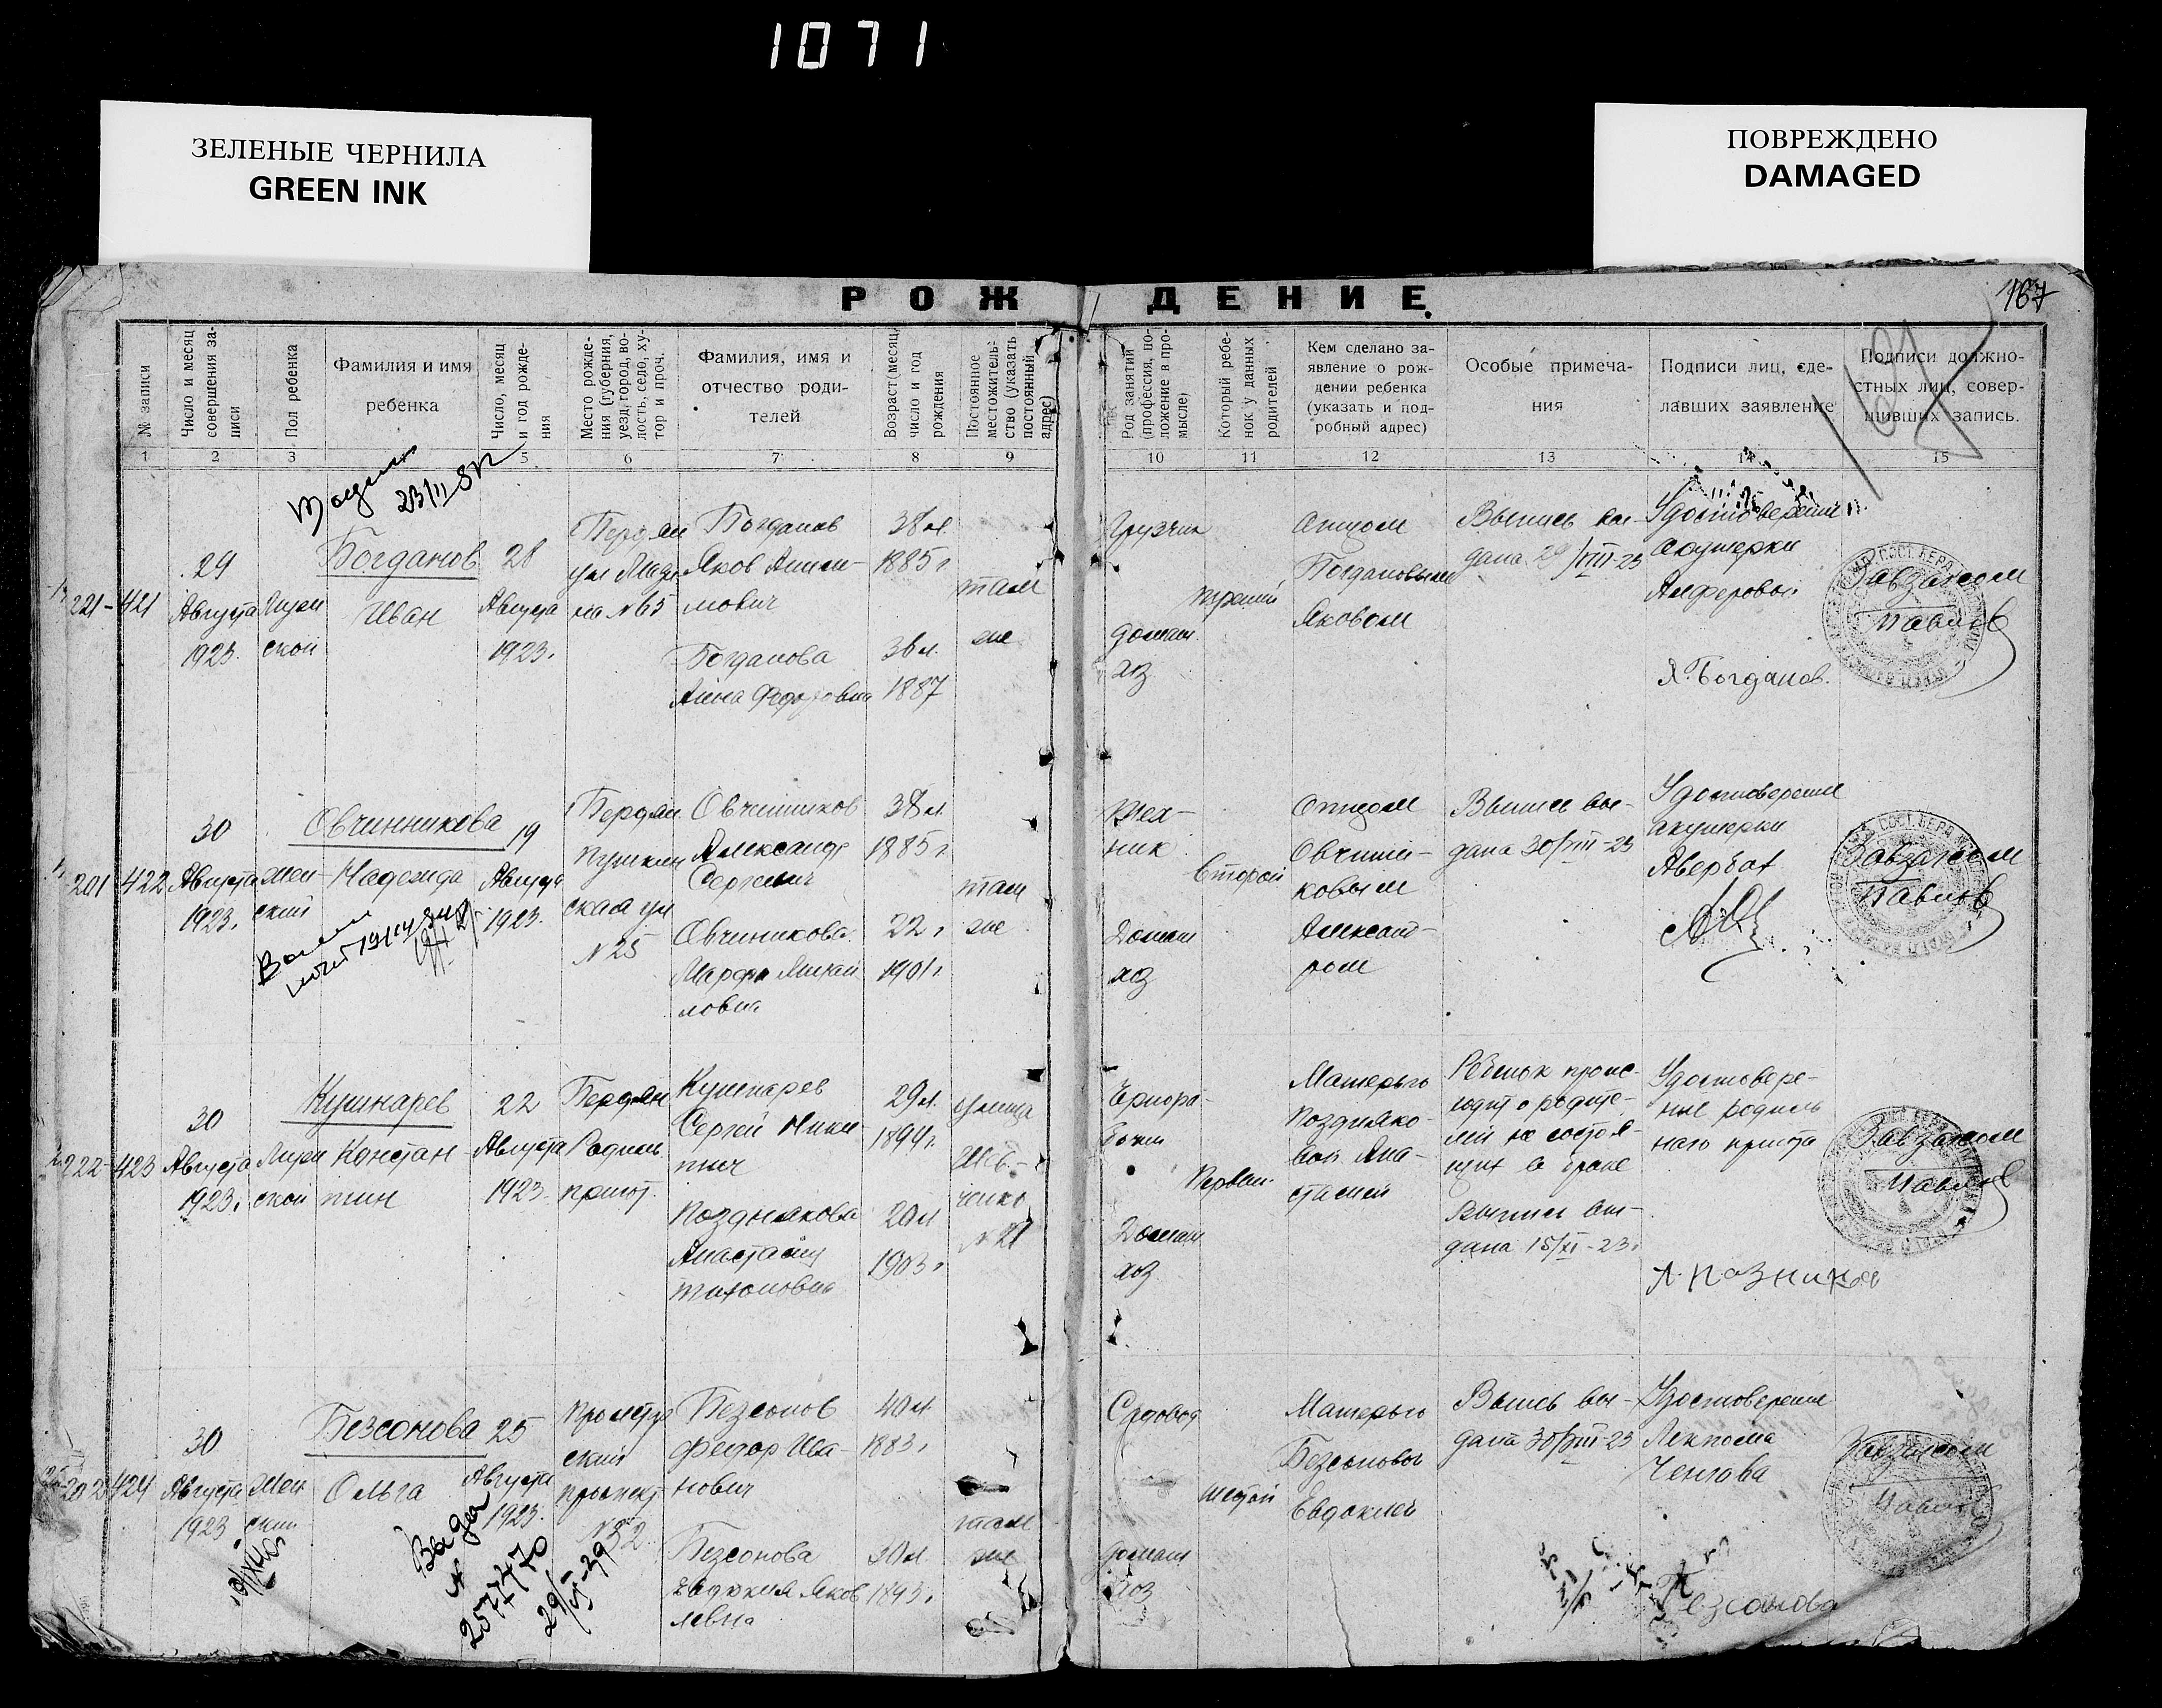 1071
ЗЕЛЕНЫЕ ЧЕРНИЛА
GREEN INK
ПОВРЕЖДЕНО
DAMAGED
РОЖДЕНИЕ.
167
№ записи
Число и месяц совершения записи
Пол ребенка
Фамилия и имя
ребенка
Число, месяц и год рождения
Место рождения (губерния, уезд, город, волость, село, хутор и проч.
Фамилия, имя и
отчество роди-
телей
Возраст месяц, число и год рождения
Постоянное местожительство (указать постоянный адрес)
Род занятий (профессия, положение в промысле)
Который ребенок у данных родителей
Кем сделано за-
явление о рож-
дении ребенка
(указать и под-
робный адрес)
Особые примеча-
ния
Подписи лиц, сде-
лавших заявление
Подписи должно-
стных лиц, совер-
шивших запись.
1 2 3 5 6 7 8 9 10 11 12 13 14 15
221-421
29
Августа
1923.
Мужской
Богданов
Иван
28
Августа
1923.
Бердян
ул
№ 65
Богданов
Яков
38 л.
1885 г
Богданова
Анна Федоровна
36 л.
1887
там
же
Грузчик
домаш.
хоз
третий
Отцом
Богдановым
Яковом
Выпись вы-
дана 29/VIII-23
Удостоверение
акушерки
Алферовой
Я. Богданов.
Завзагсом
Павлов
201 422
30
Августа
1923.
Женский
Овчинникова
Надежда
19
Августа
1923.
Бердян.
Пушкин
ская ул
№ 25
Овчинников
Александр
Сергеевич
38 л.
1885 г.
Овчинникова
Марфа Михай
ловна
22 г.
1901 г.
там
же
Тех-
ник
Домаш
хоз
Второй
Отцом
Овчинни-
ковым
Александ-
ром
Выпись вы-
дана 30/VIII-23
Удостоверение
акушерки
Авербах
Завзагсом
Павлов
222-423
30
Августа
1923.
Мужской
Кушнарев
Констан
тин
22
Августа
1923.
Бердян
Родиль.
приют.
Кушнарев
Сергей Ники
тич
29 л.
1894 г.
Позднякова
Анастасия
Тихоновна
20 л
1903 г.
улица
Шев-
ченко
№ 21
Чернора-
бочий
Домаш
хоз
Первый
Матерью
Поздняко-
вой Ана-
стасией
Ребенок проис-
ходит от родите-
лей не состоя-
щих в браке
Выпись вы-
дана 15/XI-23 г.
Удостовере-
ние родиль
наго приюта
Завзагсом
Павлов
202 424
30
Августа
1923
Женский
Безсонова
Ольга
25
Августа
1923.
проспект
Безсонов
Федор Ива-
нович
40 л
1883 г.
Безсонова
Евдокия Яков
левна
30 л.
1893 г.
там
же
Садовод
домаш
хоз
шестой
Матерью
Безсоновой
Евдокией
Выпись вы-
дана 30/VIII-23
Удостоверение
Лекпома
Безсонова
Завзагсом
Павлов